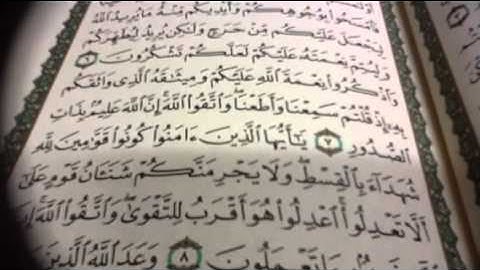 فَٱمْسَحُوا۟ بِوُجُوهِكُمْ وَأَيْدِيكُم مِّنْهُ مَا يُرِيدُ ٱللَّهُ
لِيَجْعَلَ عَلَيْكُم مِّنْ حَرَجٍ وَلَٰكِن يُرِيدُ لِيُطَهِّرَكُمْ
وَلِيُتِمَّ نِعْمَتَهُۥ عَلَيْكُمْ لَعَلَّكُمْ تَشْكُرُونَ ٦
وَٱذْكُرُوا۟ نِعْمَةَ ٱللَّهِ عَلَيْكُمْ وَمِيثَٰقَهُ ٱلَّذِى وَاثَقَكُم
بِهِۦٓ إِذْ قُلْتُمْ سَمِعْنَا وَأَطَعْنَا وَٱتَّقُوا۟ ٱللَّهَ إِنَّ ٱللَّهَ عَلِيمٌۢ بِذَاتِ
ٱلصُّدُورِ ٧ يَٰٓأَيُّهَا ٱلَّذِينَ ءَامَنُوا۟ كُونُوا۟ قَوَّٰمِينَ لِلَّهِ
شُهَدَآءَ بِٱلْقِسْطِ وَلَا يَجْرِمَنَّكُمْ شَنَـَٔانُ قَوْمٍ عَلَىٰٓ
أَلَّا تَعْدِلُوا۟ ٱعْدِلُوا۟ هُوَ أَقْرَبُ لِلتَّقْوَىٰ وَٱتَّقُوا۟ ٱللَّهَ إِنَّ
بِمَا تَعْمَلُونَ ٨ وَعَدَ ٱللَّهُ ٱلَّذِينَ